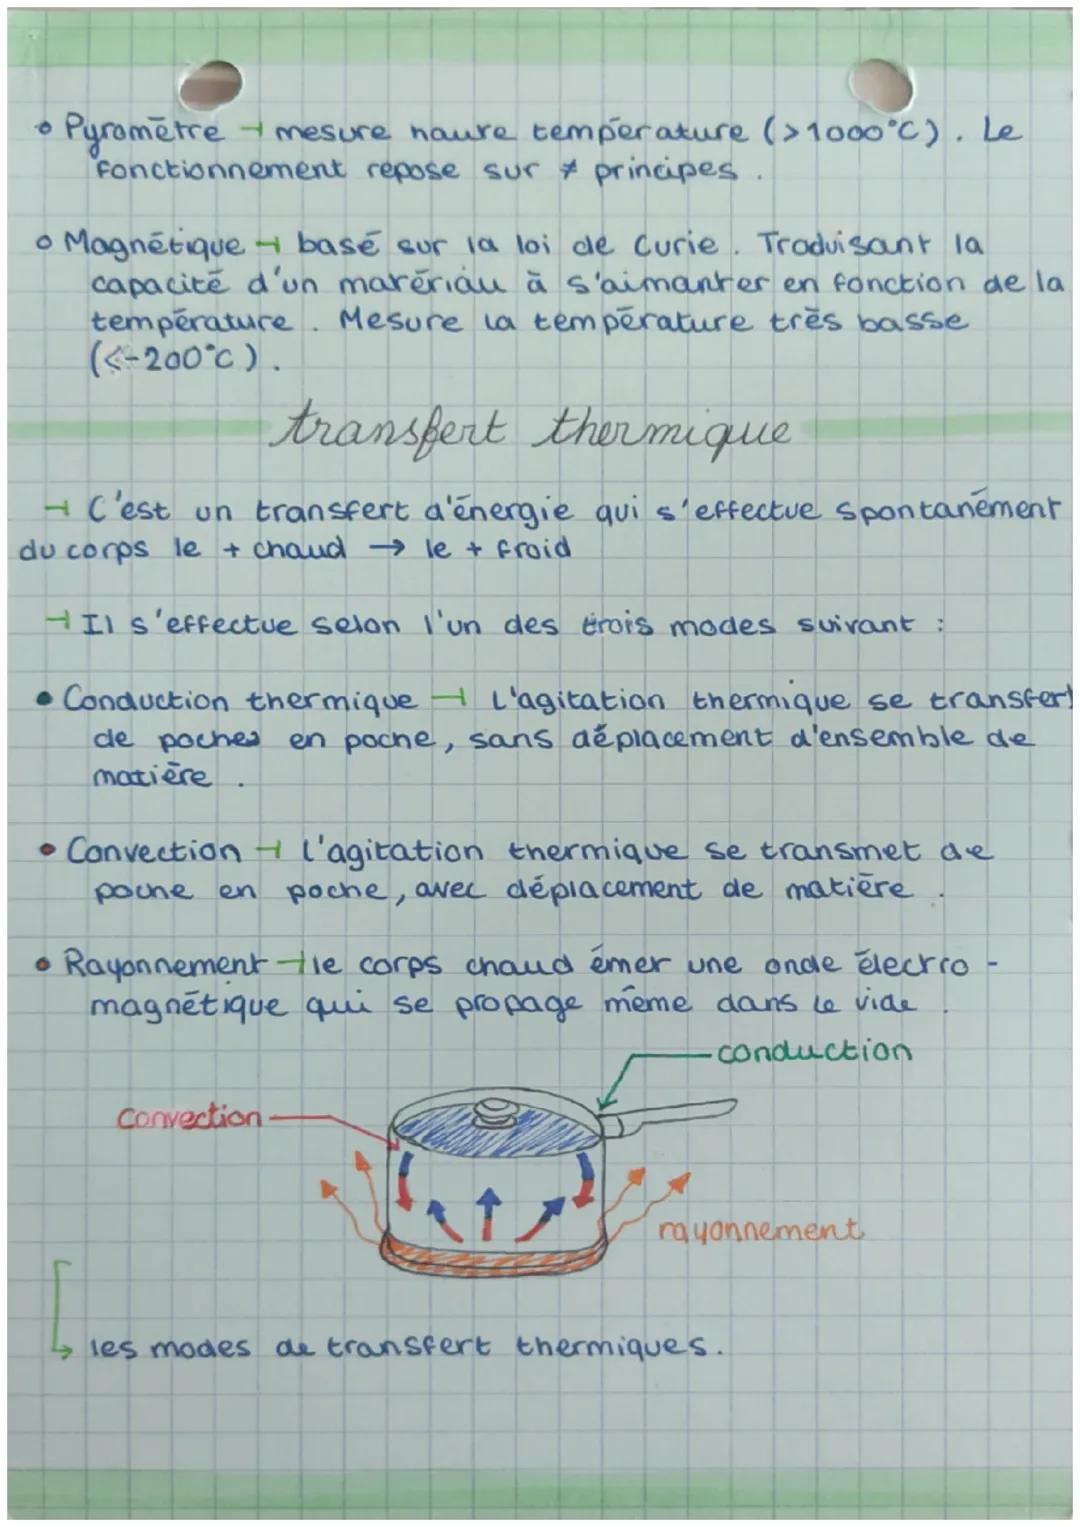 Pyromètre → mesure haute température (>1000°C). Le
fonctionnement repose sur ≠ principes.
Magnétique → basé sur la loi de Curie. Traduisant la
capacité d'un matériau à s'aimanter en fonction de la
température. Mesure la température très basse
(<-200°C).
transfert thermique
→ C'est un transfert d'énergie qui s'effectue spontanément
du corps le + chaud → le + froid
→ Il s'effectue selon l'un des trois modes suivant :
Conduction thermique → L'agitation thermique se transfert
de poches en poche, sans déplacement d'ensemble de
matière.
Convection → l'agitation thermique se transmet de
poche en poche, avec déplacement de matière.
Rayonnement → le corps chaud émet une onde électro-
magnétique qui se propage même dans le vide.
conduction
Convection
rayonnement
↳ les modes de transfert thermiques.